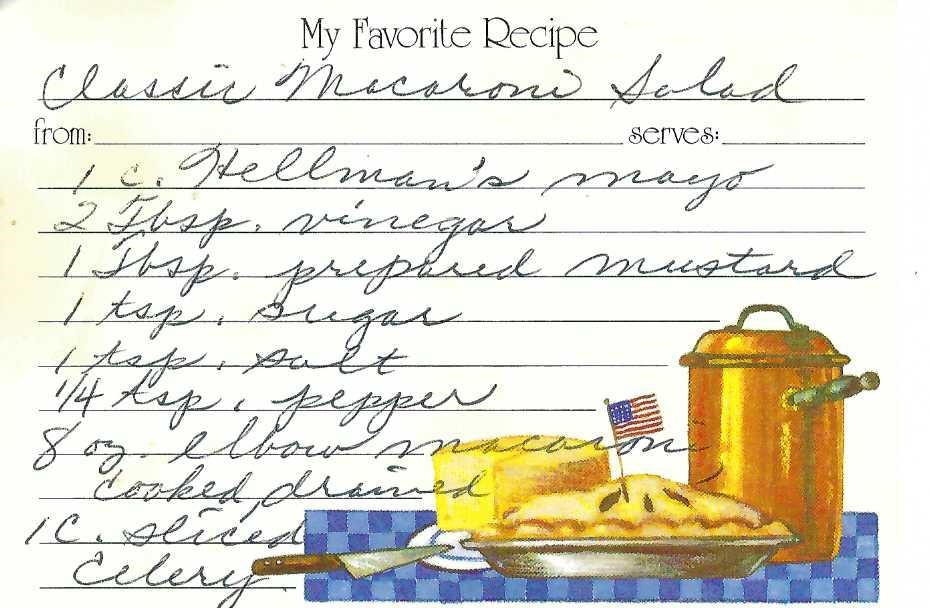 My Favorite Recipe
Classic Macaroni Salad
from: serves:
1 c. Hellman's mayo
2 Tbsp. vinegar
1 Tbsp. prepared mustard
1 tsp. sugar
1 tsp. salt
1/4 tsp. pepper
8 oz. elbow macaroni,
cooked, drained
1 C. sliced
Celery